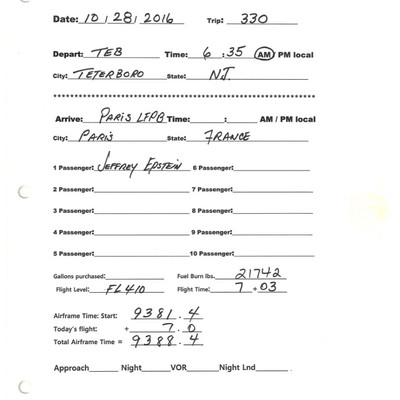 Date: 10/28/2016 Trip: 330
Depart: TEB Time: 6:35 AM / PM local
City: TETERBORO State: NJ.
Arrive: PARIS LFPB Time: : AM / PM local
City: PARIS State: FRANCE
1 Passenger: JEFFREY EPSTEIN 6 Passenger:
2 Passenger: 7 Passenger:
3 Passenger: 8 Passenger:
4 Passenger: 9 Passenger:
5 Passenger: 10 Passenger:
Gallons purchased: Fuel Burn lbs. 21742
Flight Level: FL410 Flight Time: 7 + 03
Airframe Time: Start: 9381.4
Today's flight: + 7.0
Total Airframe Time = 9388.4
Approach Night VOR Night Lnd